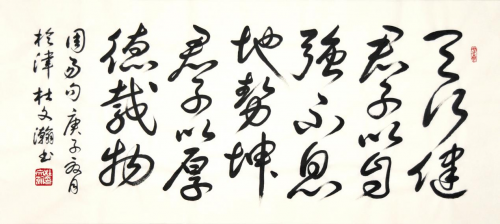 天行健
君子以自
強不息
地勢坤
君子以厚
德載物
周易句庚子月
於津杜文瀚书